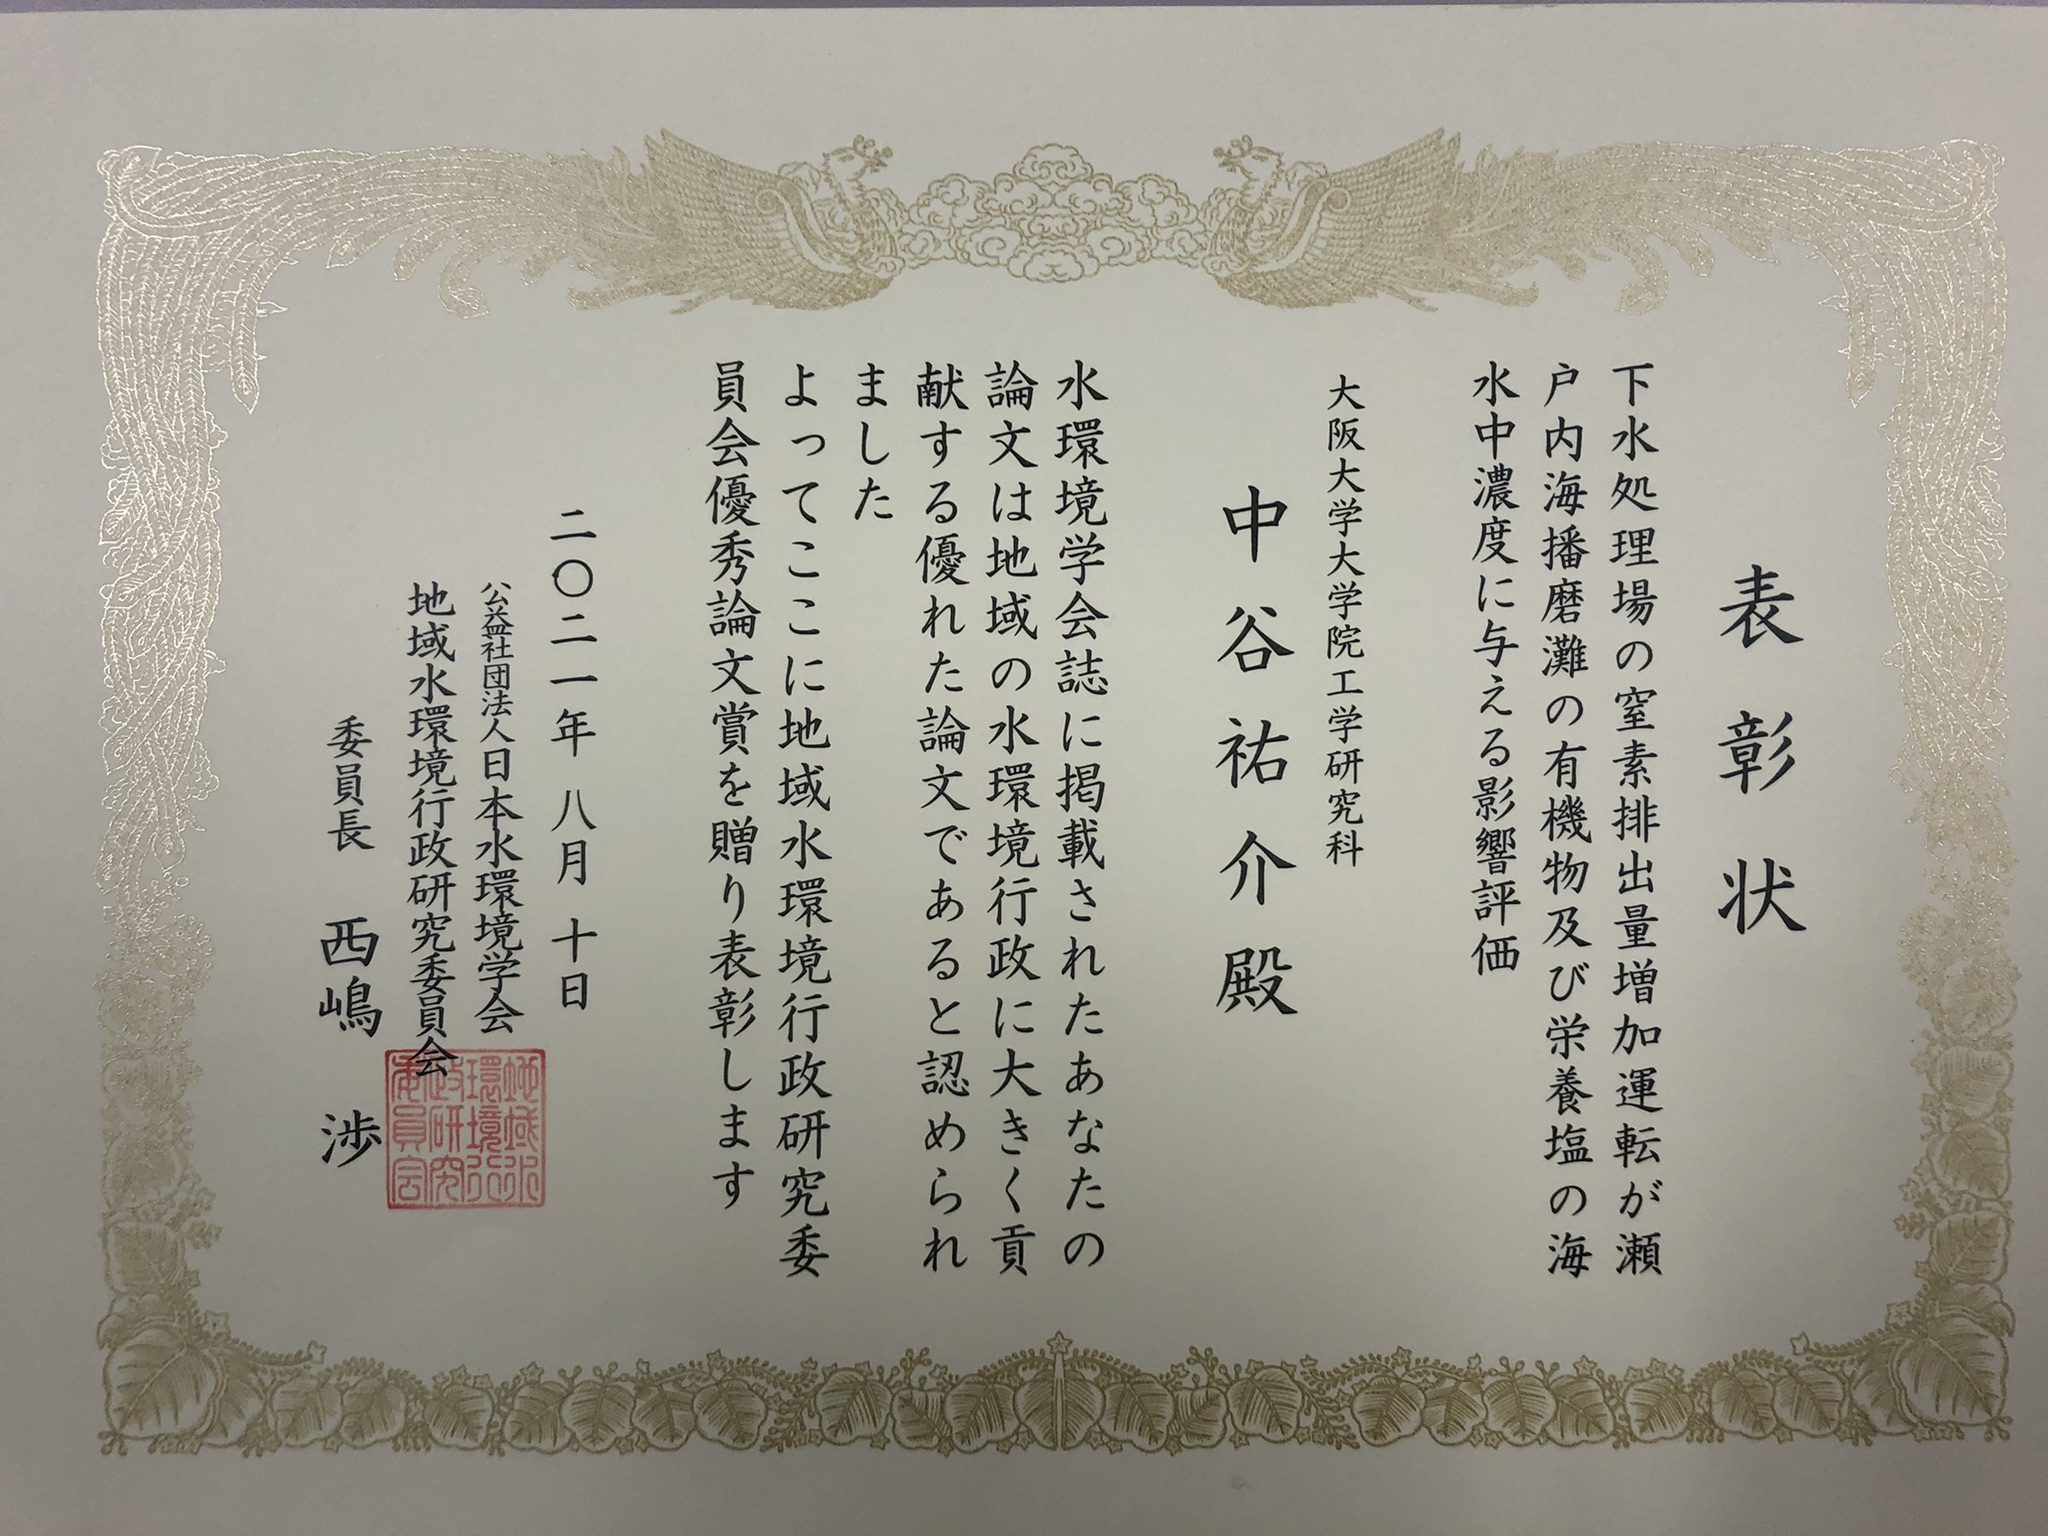 表彰状
下水処理場の窒素排出量増加運転が瀬
戸内海播磨灘の有機物及び栄養塩の海
水中濃度に与える影響評価
大阪大学大学院工学研究科
中谷祐介殿
水環境学会誌に掲載されたあなたの
論文は地域の水環境行政に大きく貢
献する優れた論文であると認められ
ました
よってここに地域水環境行政研究委
員会優秀論文賞を贈り表彰します
二〇二一年 八月 十日
公益社団法人日本水環境学会
地域水環境行政研究委員会
委員長 西嶋 渉
地域水
環境行
政研究
委員会